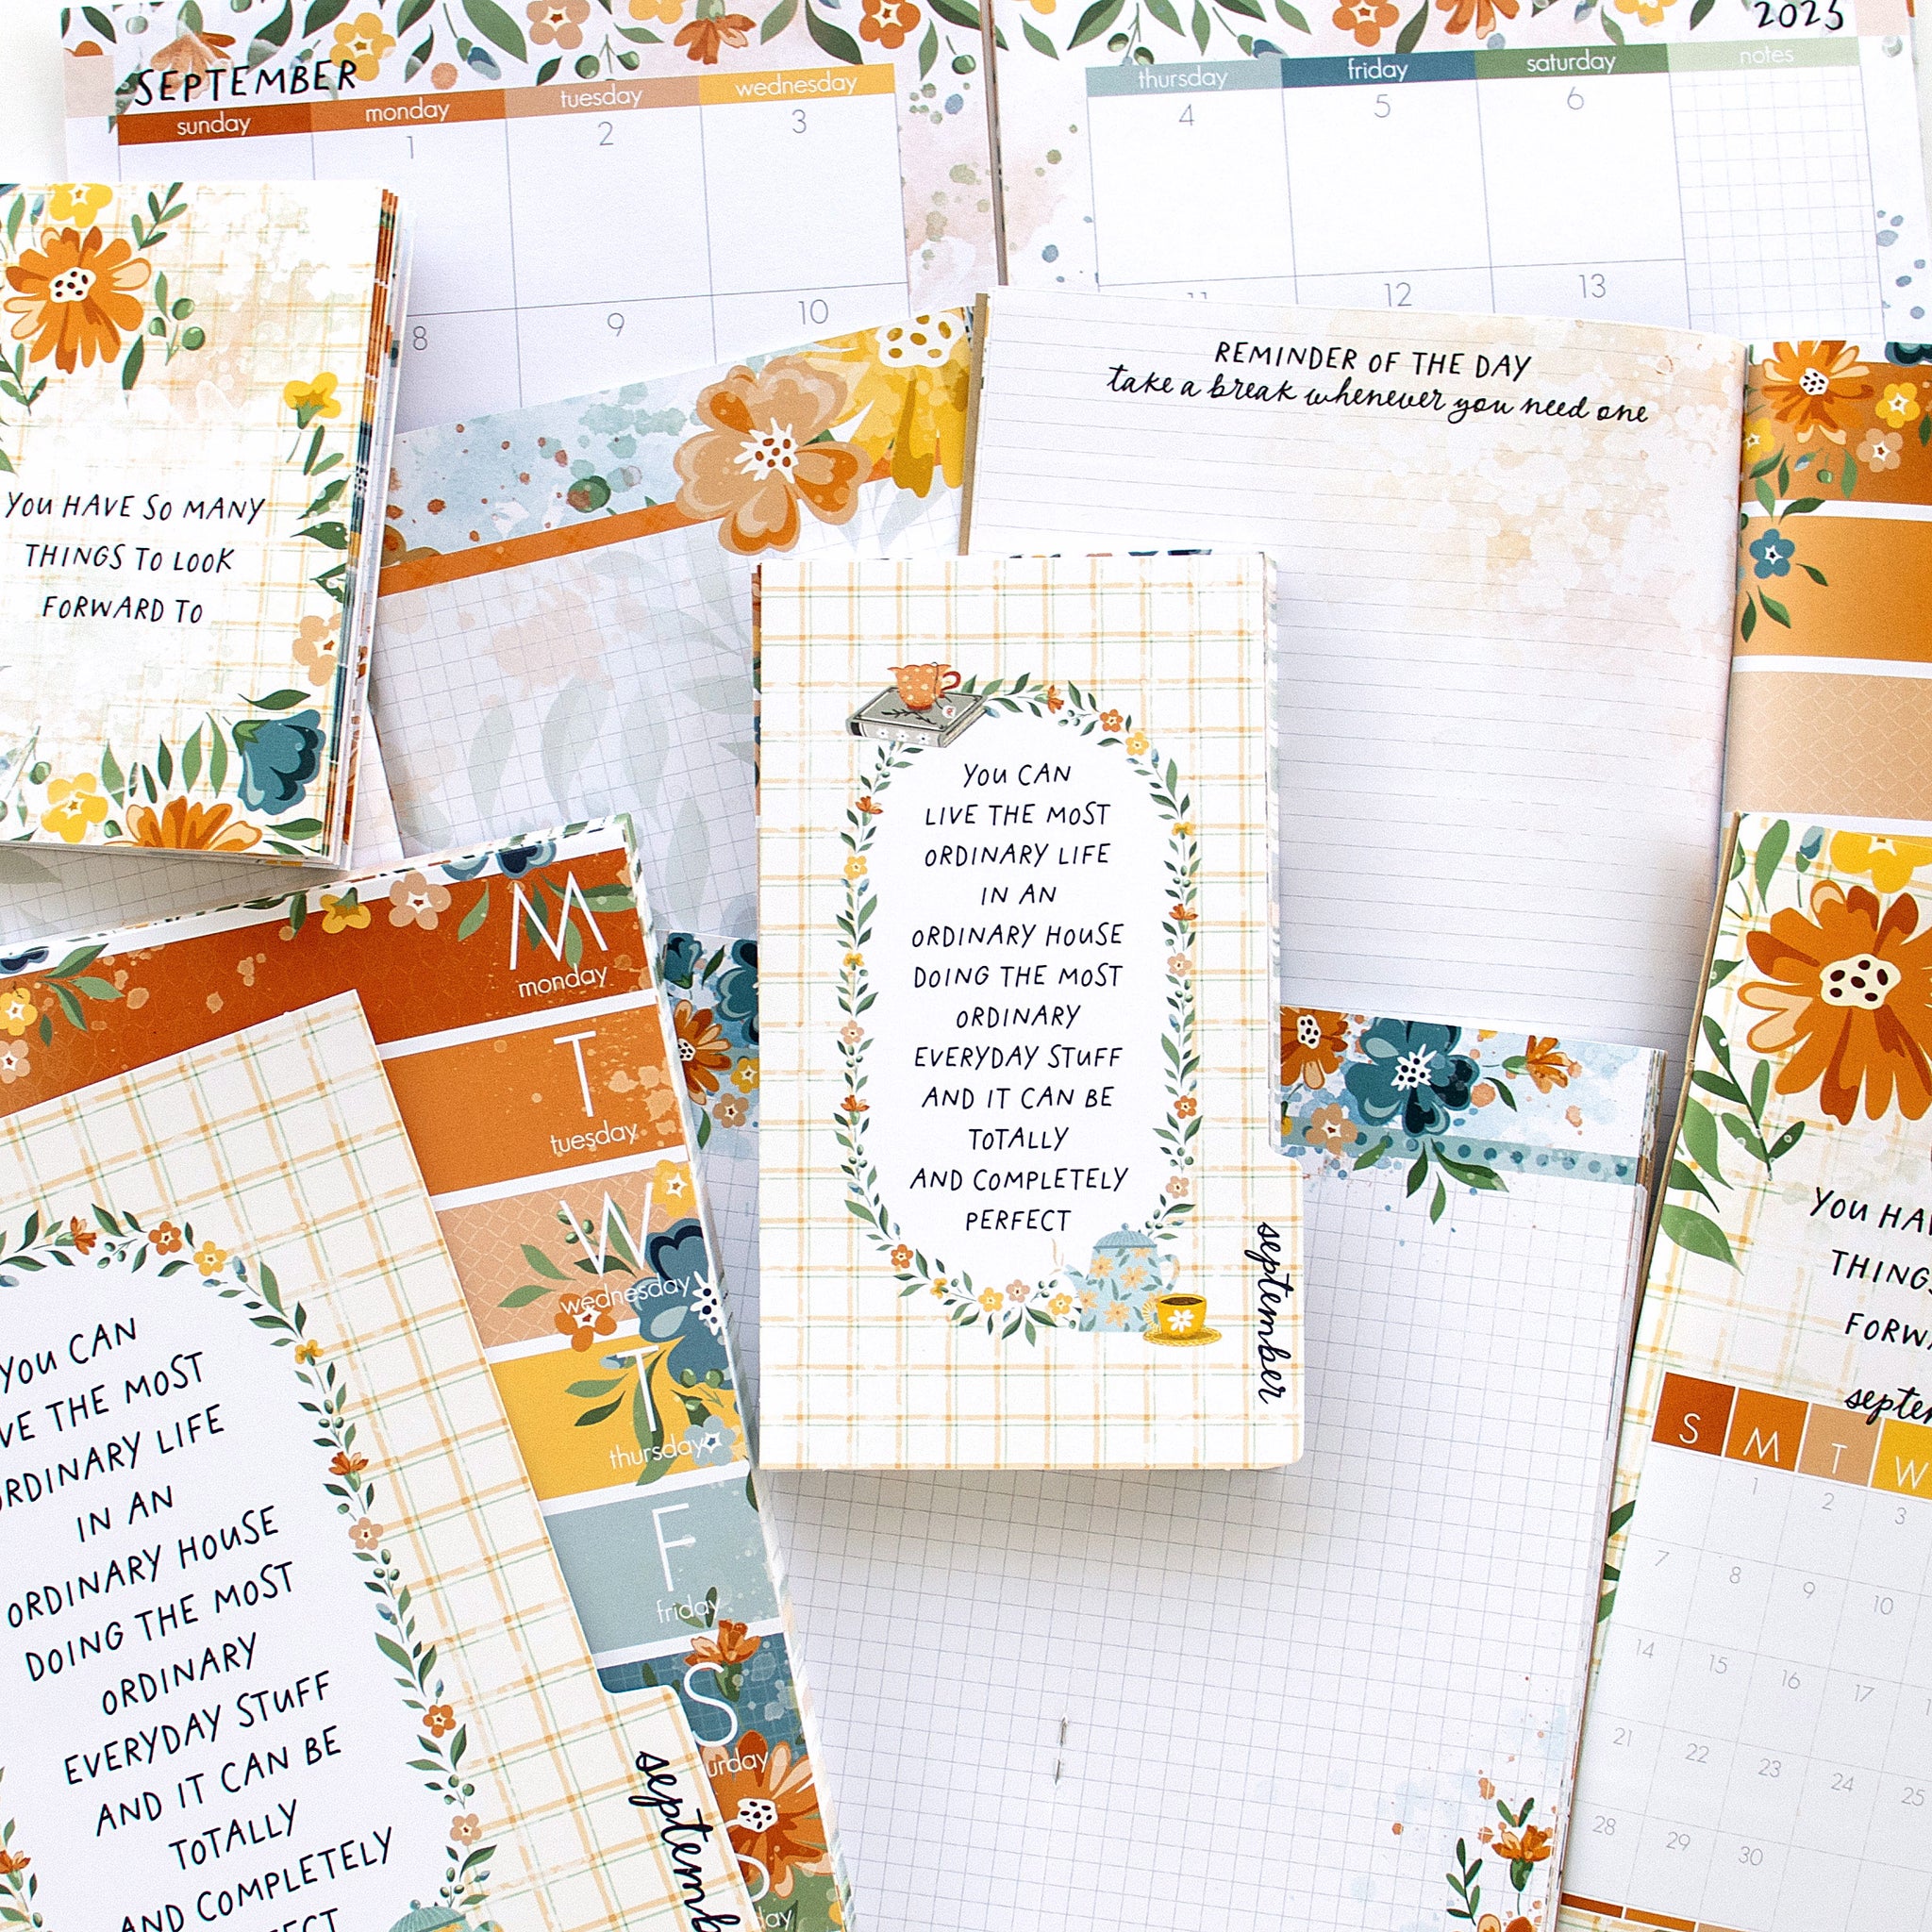 SEPTEMBER
sunday monday tuesday wednesday
1 2 3
8 9 10
2025
thursday friday saturday notes
4 5 6
11 12 13
YOU HAVE SO MANY
THINGS TO LOOK
FORWARD TO
REMINDER OF THE DAY
take a break whenever you need one
YOU CAN
LIVE THE MOST
ORDINARY LIFE
IN AN
ORDINARY HOUSE
DOING THE MOST
ORDINARY
EVERYDAY STUFF
AND IT CAN BE
TOTALLY
AND COMPLETELY
PERFECT
september
M
monday
T
tuesday
W
wednesday
T
thursday
F
friday
S
urday
S
day
YOU CAN
VE THE MOST
ORDINARY LIFE
IN AN
ORDINARY HOUSE
DOING THE MOST
ORDINARY
EVERYDAY STUFF
AND IT CAN BE
TOTALLY
AND COMPLETELY
FECT
septemb
YOU HA
THING
FORW
septe
S M T W
1 2 3
7 8 9 10
14 15 16 17
21 22 23 24 25
28 29 30